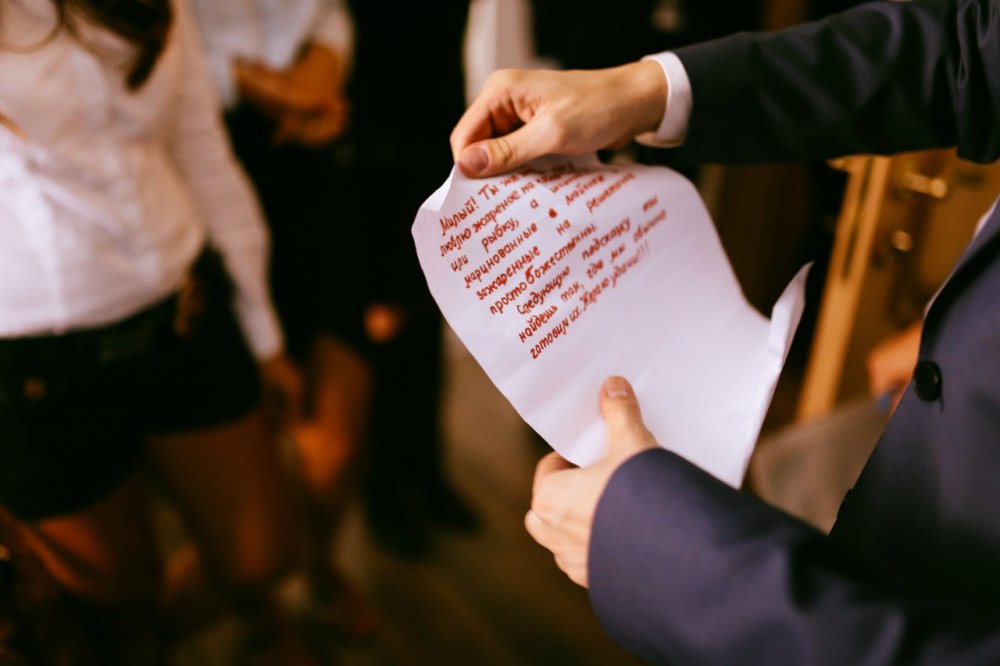 Милый! Ты
люблю жареное на
или рыбку, а
маринованные в майонезе
зажаренные на решетке
просто божественны.
Следующую подсказку ты
найдешь там, где мы обычно
готовим их. Желаю удачи!!!